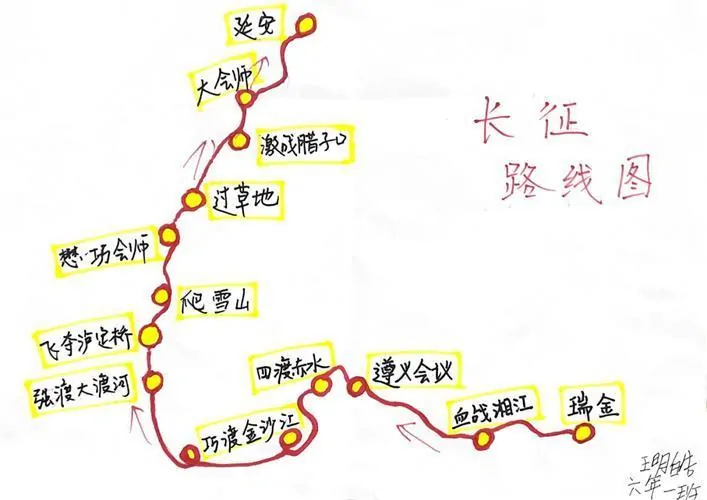 延安
大会师
激战腊子口
过草地
懋功会师
爬雪山
飞夺泸定桥
强渡大渡河
巧渡金沙江
四渡赤水
遵义会议
血战湘江
瑞金
长征
路线图
王明皓
六年一班